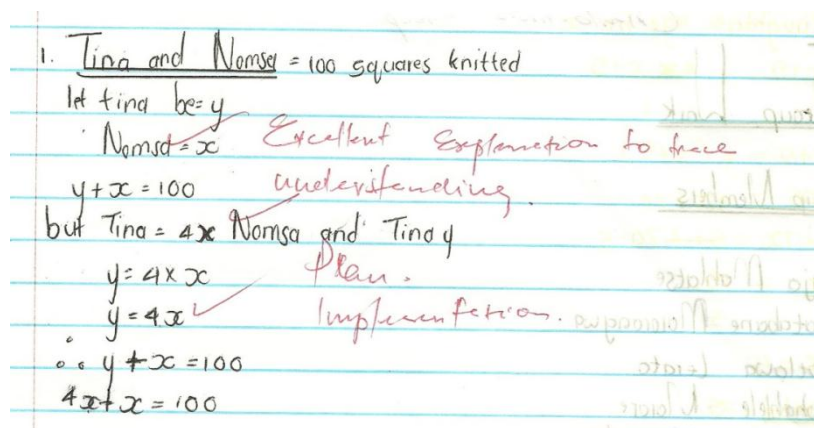 1. Tina and Nomsa = 100 squares knitted
let tina be= y
Nomsa = x Excellent Explanation to trace
y + x = 100 understanding.
but Tina = 4x Nomsa and Tina y
y = 4 x x Plan.
y = 4x Implementation.
∴ y + x = 100
4x + x = 100